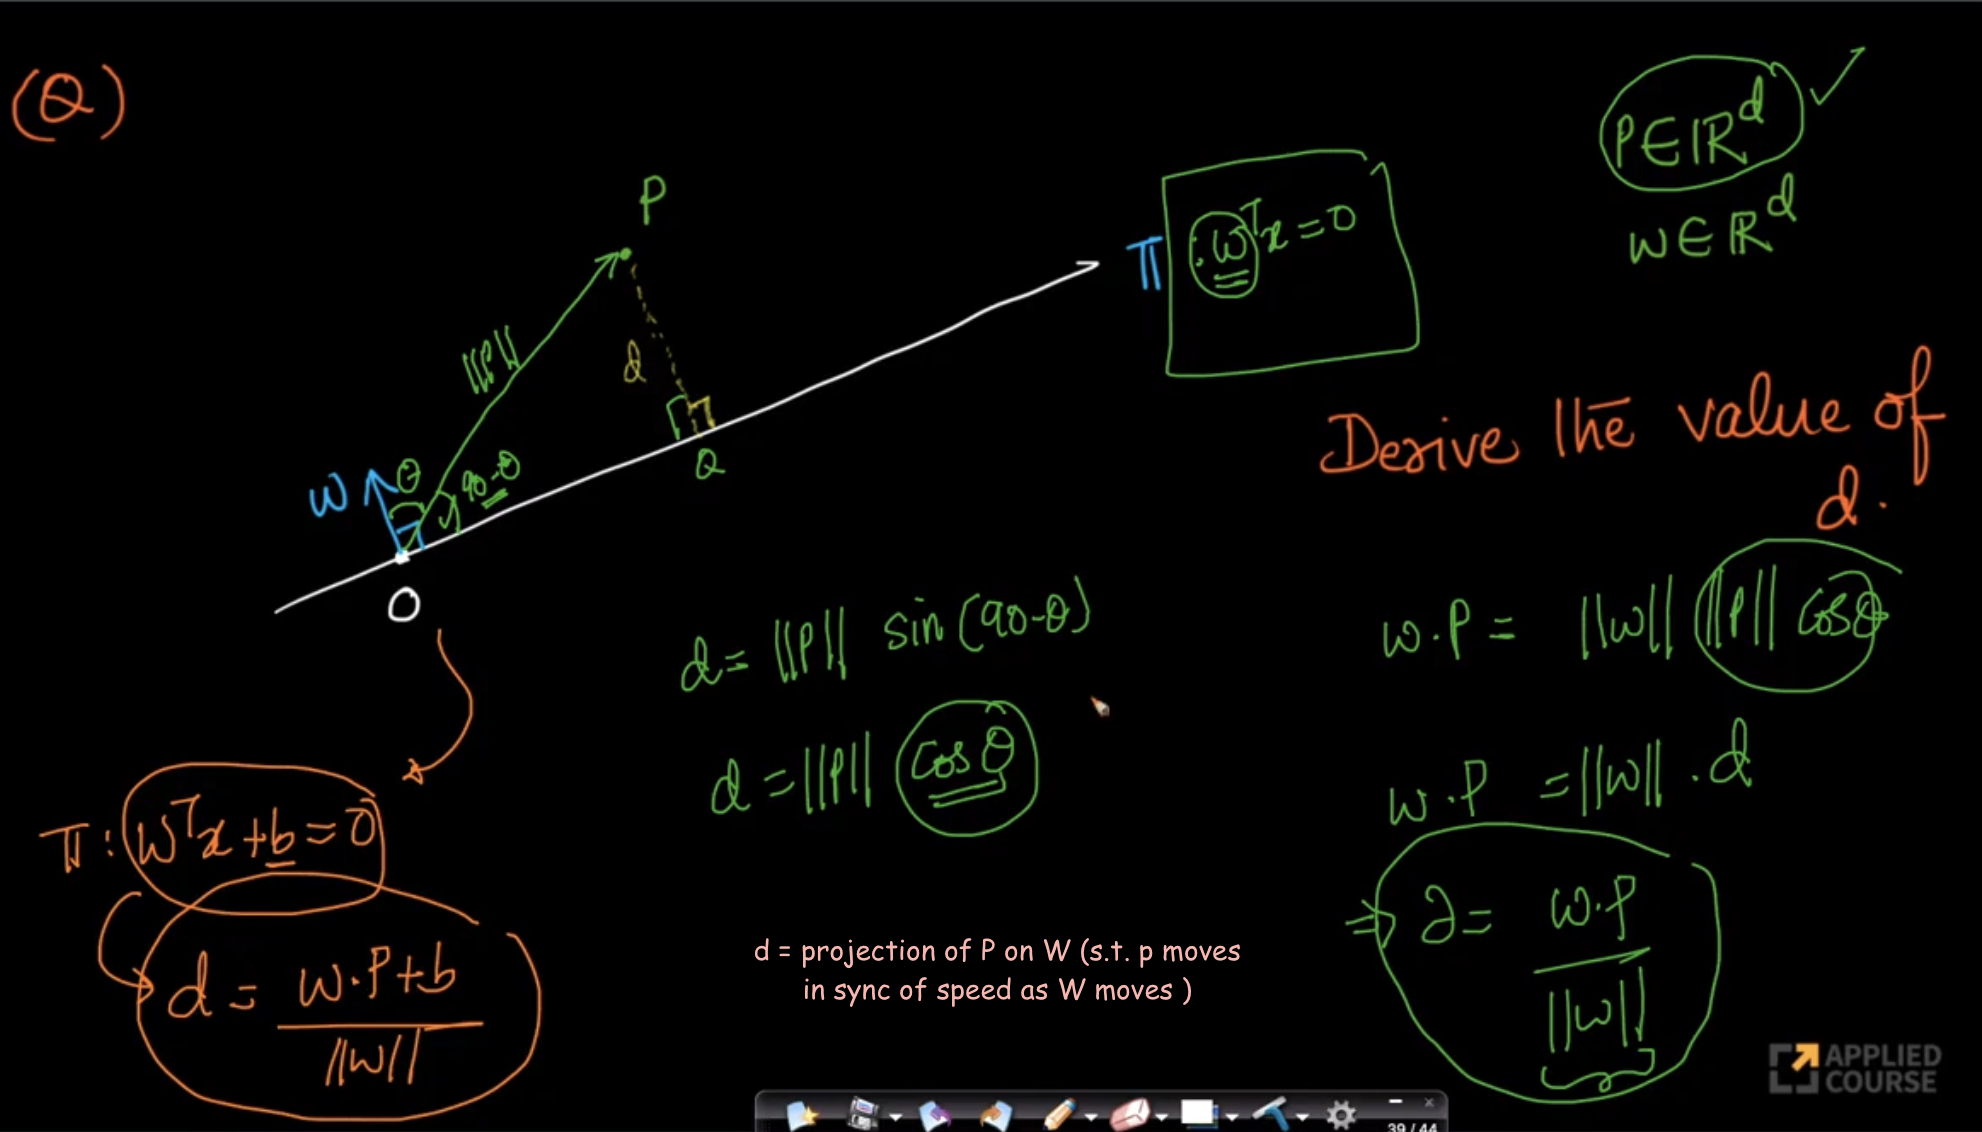 (Q)
P ∈ ℝᵈ ✓
w ∈ ℝᵈ
P
π : wᵀx = 0
||P||
d
Derive the value of
d.
w
θ
90-θ
Q
O
d = ||P|| sin(90-θ)
d = ||P|| cos θ
w.P = ||w|| ||P|| cos θ
w.P = ||w|| . d
⇒ d = w.P / ||w||
π : wᵀx + b = 0
d = w.P + b / ||w||
d = projection of P on W (s.t. p moves
in sync of speed as W moves )
APPLIED
COURSE
39 / 44